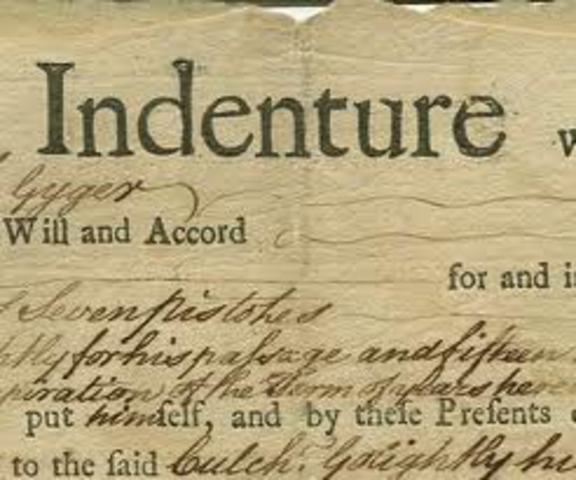 Indenture
Gyger
Will and Accord
for and
Seven pistoles
for his paſsage and fifteen
of the Term of years
put himſelf, and by theſe Preſents
to the ſaid Culchr. Golightly